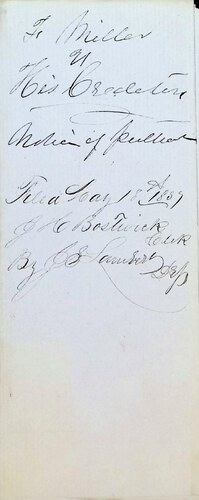 F Miller
vs
His Creditors
Notice of
Filed May 18th 1889
J H Bostwick
Clerk
By J E Lambert
Dep